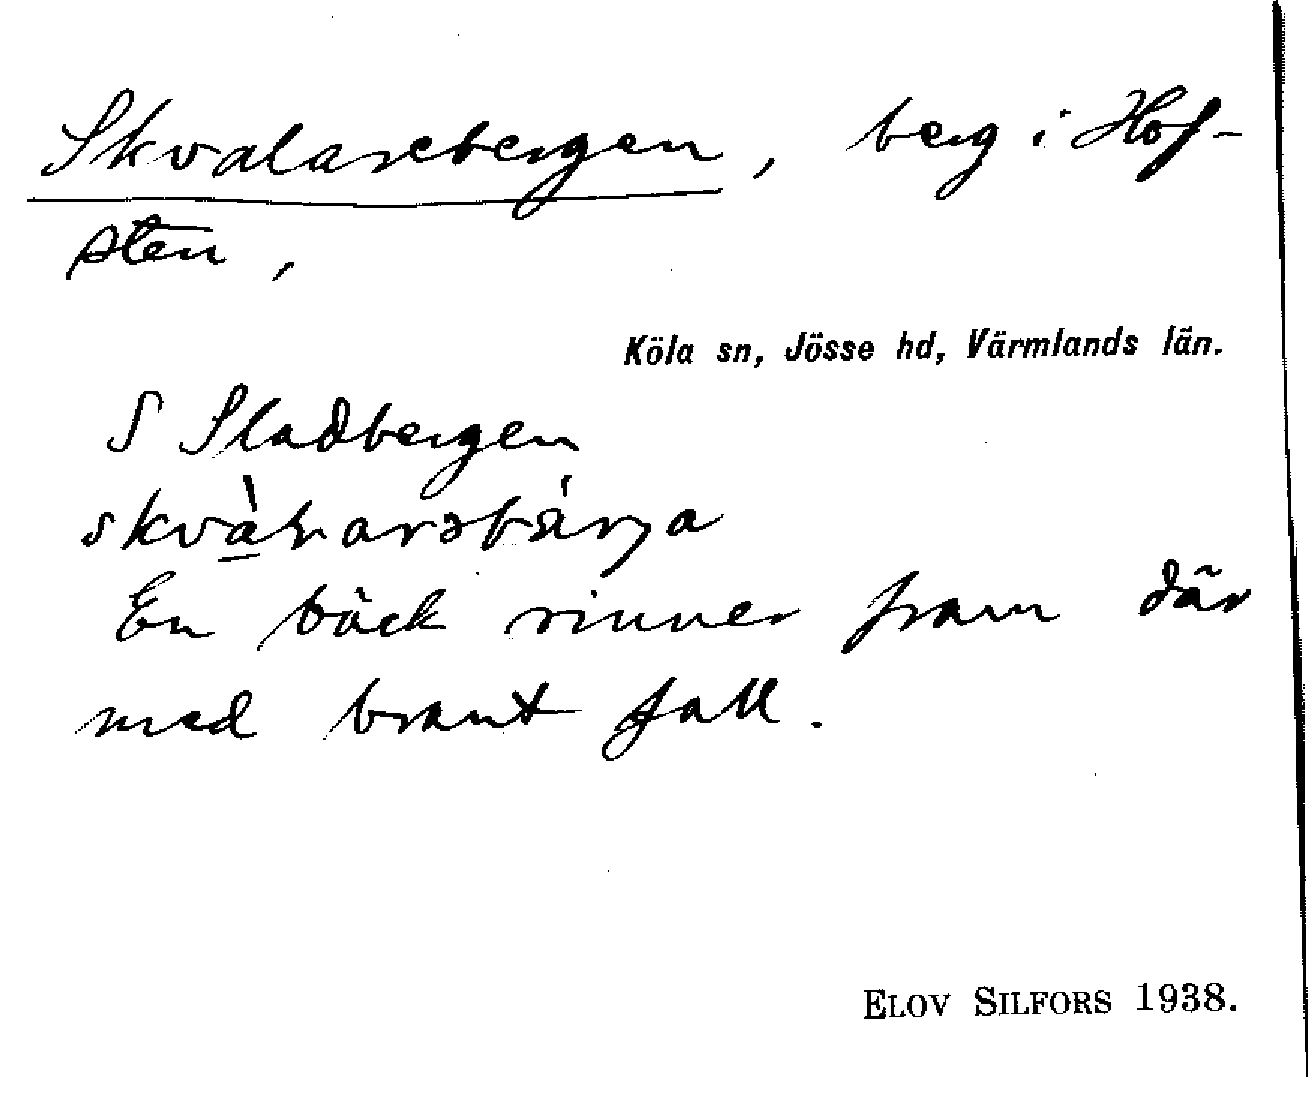 Skvalarebergen, berg i Hof-
sten,
Köla sn, Jösse hd, Värmlands län.
S Sladbergen
En bäck rinner fram där
med brant fall.
ELOV SILFORS 1938.